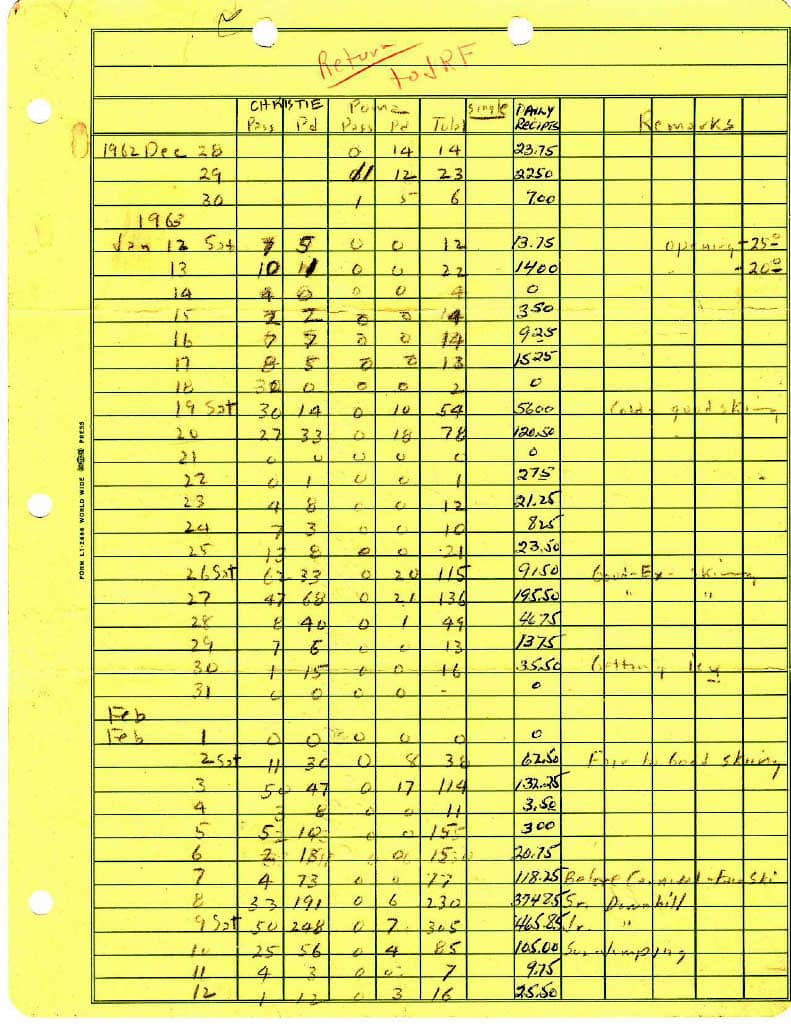 Return
to JRF
CHRISTIE Poma Single DAILY
Pass Pd Pass Pd Total RECIPTS Remarks
1962 Dec 28 0 14 14 23.75
29 11 12 23 2250
30 1 5 6 7.00
1963
Jan 12 Sat 7 5 0 0 12 13.75 opening - 25°
13 10 11 0 0 22 1400 " - 20°
14 4 0 0 0 4 0
15 2 2 0 0 4 3.50
16 7 7 0 0 14 925
17 8 5 0 0 13 1525
18 0 0 0 2 0
19 Sat 30 14 0 10 54 5600 Cold - good skiing
20 27 33 0 18 78 120.50
21 0 0 0 0 0 0
22 0 1 0 0 1 275
23 4 8 0 0 12 21.25
24 7 3 0 0 10 825
25 13 8 0 0 21 23.50
26 Sat 62 33 0 20 115 9150 Good - Ex - skiing
27 47 68 0 21 136 195.50 " "
28 8 40 0 1 49 4675
29 7 6 0 0 13 1375
30 1 15 0 0 16 35.50 Getting Icy
31 0 0 0 0 - 0
Feb
Feb 1 0 0 0 0 0 0
2 Sat 11 30 0 8 38 62.50 Fair to Good skiing
3 50 47 0 17 114 132.25
4 3 8 0 0 11 3.50
5 5 10 0 0 15 300
6 2 13 0 0 15 20.75
7 4 73 0 0 77 118.25 Before Carnival -
8 33 191 0 6 230 37425 Sr. Downhill
9 Sat 50 248 0 7 305 465.85 Jr. "
10 25 56 0 4 85 105.00 Jumping
11 4 3 0 0 7 9.75
12 1 12 0 3 16 25.50
FORM L1-2468 WORLD WIDE PRESS